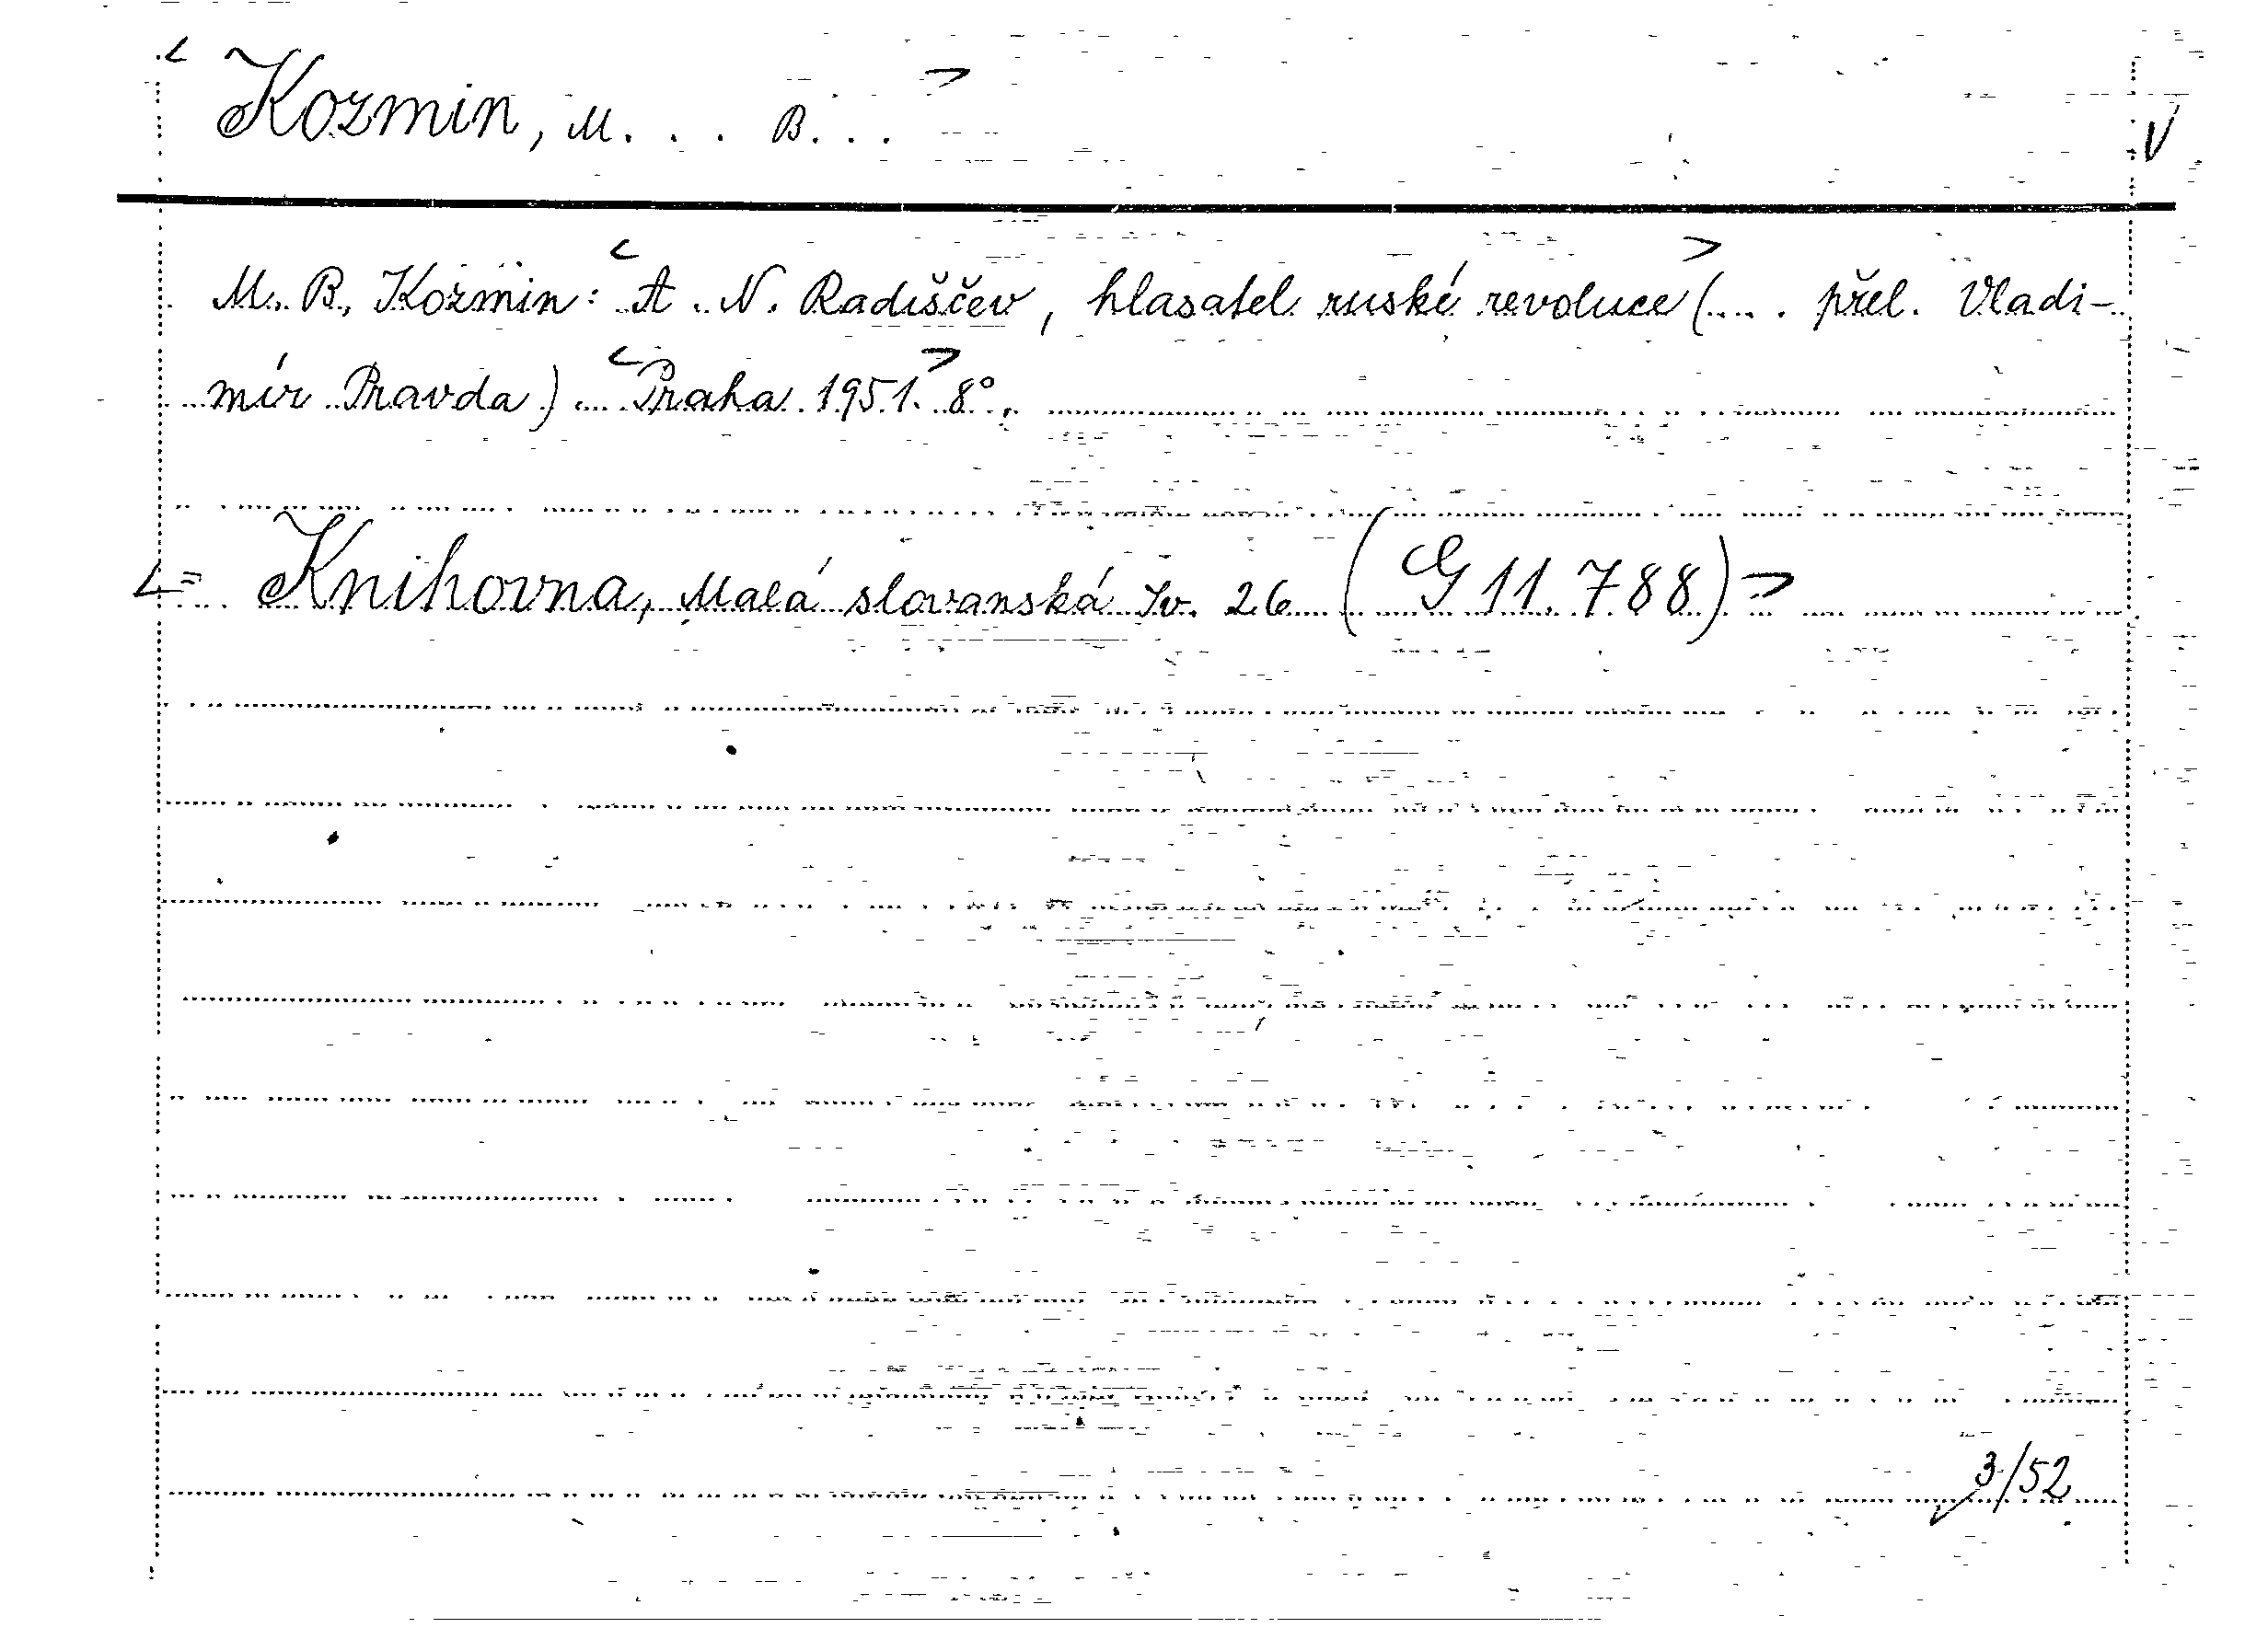 < Kozmin, M. . . B. . . >
V
M. B. Kozmin: <A. N. Radiščev, hlasatel ruské revoluce> (.... přel. Vladi-
mír Pravda). <Praha 1951.> 8°.
<= Knihovna, Malá slovanská sv. 26 (G 11.788)>
3/52